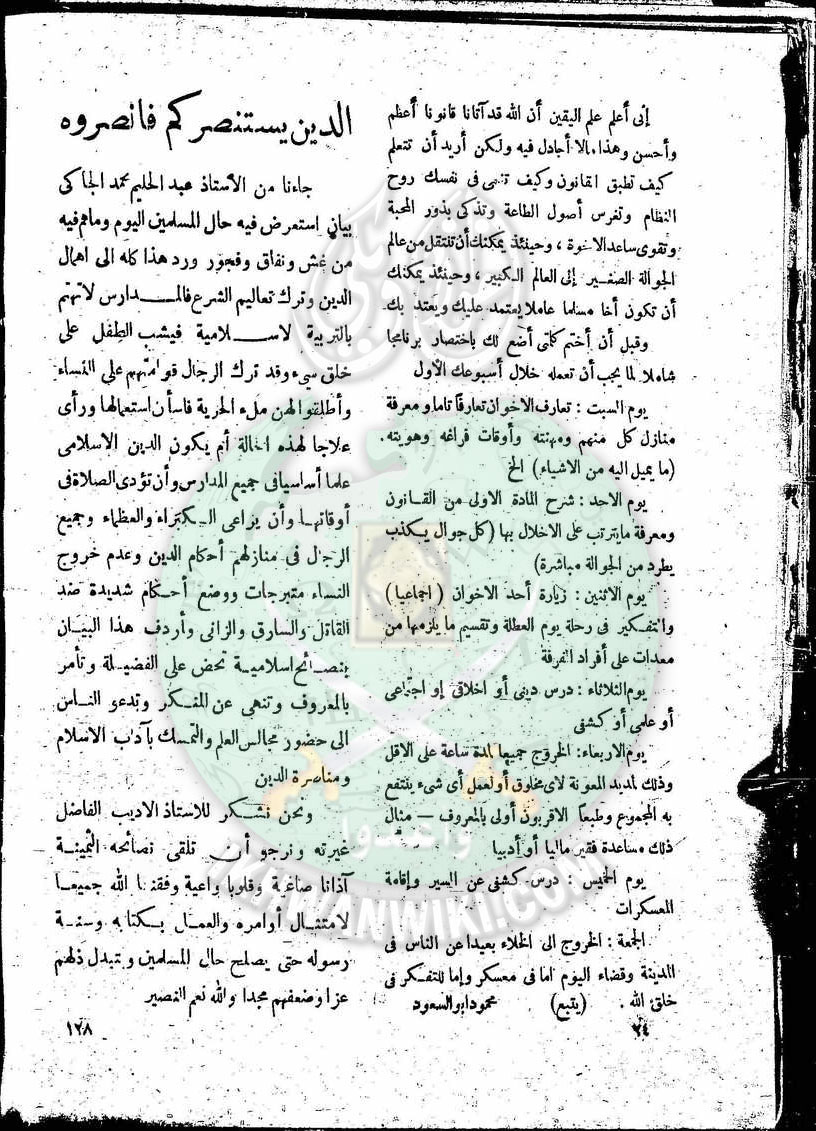 إنى أعلم علم اليقين أن الله قد آتانا قانونا أعظم
وأحسن وهذا مالا أجادل فيه ولكن أريد أن تتعلم
كيف تطبق القانون وكيف تنمى فى نفسك روح
النظام وتغرس أصول الطاعة وتذكى بذور المحبة
وتقوى ساعد الاخوة ، وحينئذ يمكنك أن تنتقل من عالم
الجوالة الصغير إلى العالم الكبير ، وحينئذ يمكنك
أن تكون أخا مسلما عاملا يعتمد عليك ويعتد بك
وقبل أن أختم كلمتى أضع لك باختصار برنامجا
شاملا لما يجب أن تعمله خلال أسبوعك الأول
يوم السبت : تعارف الاخوان تعارفا تاما ومعرفة
منازل كل منهم ومهنته وأوقات فراغه وهويته .
(ما يميل اليه من الاشياء) الخ
يوم الاحد : شرح المادة الاولى من القانون
ومعرفة ما يترتب على الاخلال بها (كل جوال يكذب
يطرد من الجوالة مباشرة)
يوم الاثنين : زيارة أحد الاخوان (اجماعيا)
والتفكير فى رحلة يوم العطلة وتقسيم ما يلزمها من
معدات على أفراد الفرقة
يوم الثلاثاء : درس دينى أو اخلاقى او اجتماعى
أو علمى أو كشفى
يوم الاربعاء : الخروج جميعا لمدة ساعة على الاقل
وذلك لمد يد المعونة لاى مخلوق أو لعمل أى شىء ينتفع
به المجموع وطبعا الاقربون أولى بالمعروف — مثال
ذلك مساعدة فقير ماليا أو أدبيا
يوم الخميس : درس كشفى عن السير وإقامة
المعسكرات
الجمعة : الخروج الى الخلاء بعيدا عن الناس فى
المدينة وقضاء اليوم اما فى معسكر وإما للتفكر فى
خلق الله . (يتبع) محمود ابو السعود
٢٤
الدين يستنصركم فانصروه
جاءنا من الأستاذ عبد الحليم محمد الجاكى
بيان استعرض فيه حال المسلمين اليوم وما هم فيه
من غش ونفاق وفجور ورد هذا كله الى اهمال
الدين وترك تعاليم الشرع فالمدارس لا تهتم
بالتربية لاسلامية فيشب الطفل على
خلق سيء وقد ترك الرجال قوامتهم على النساء
وأطلقوا لهن ملء الحرية فاسأن استعمالها ورأى
علاجا لهذه الحالة أن يكون الدين الاسلامى
علما أساسيا فى جميع المدارس وأن تؤدى الصلاة فى
أوقاتها وأن يراعى الكبراء والعظماء وجميع
الرجال فى منازلهم أحكام الدين وعدم خروج
النساء متبرجات ووضع أحكام شديدة ضد
القاتل والسارق والزانى وأردف هذا البيان
بنصائح اسلامية تحض على الفضيلة وتأمر
بالمعروف وتنهى عن المنكر وتدعو الناس
الى حضور مجالس العلم والتمسك بآداب الاسلام
ومناصرة الدين
ونحن نشكر للاستاذ الاديب الفاضل
غيرته ونرجو أن تلقى نصائحه الثمينة
آذانا صاغية وقلوبا واعية وفقنا الله جميعا
لامتثال أوامره والعمل بكتابه وسنة
رسوله حتى يصلح حال المسلمين وتبدل ذلهم
عزا وضعفهم مجدا والله نعم النصير
١٢٨
وأعدوا
IKHWANWIKI.COM